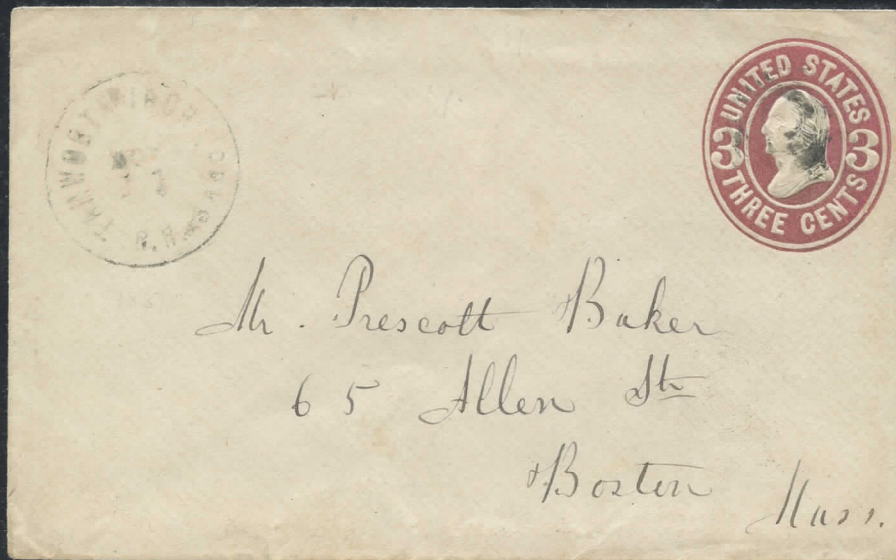 UNITED STATES
3 3
THREE CENTS
Mr. Prescott Baker
65 Allen St
Boston
Mass.